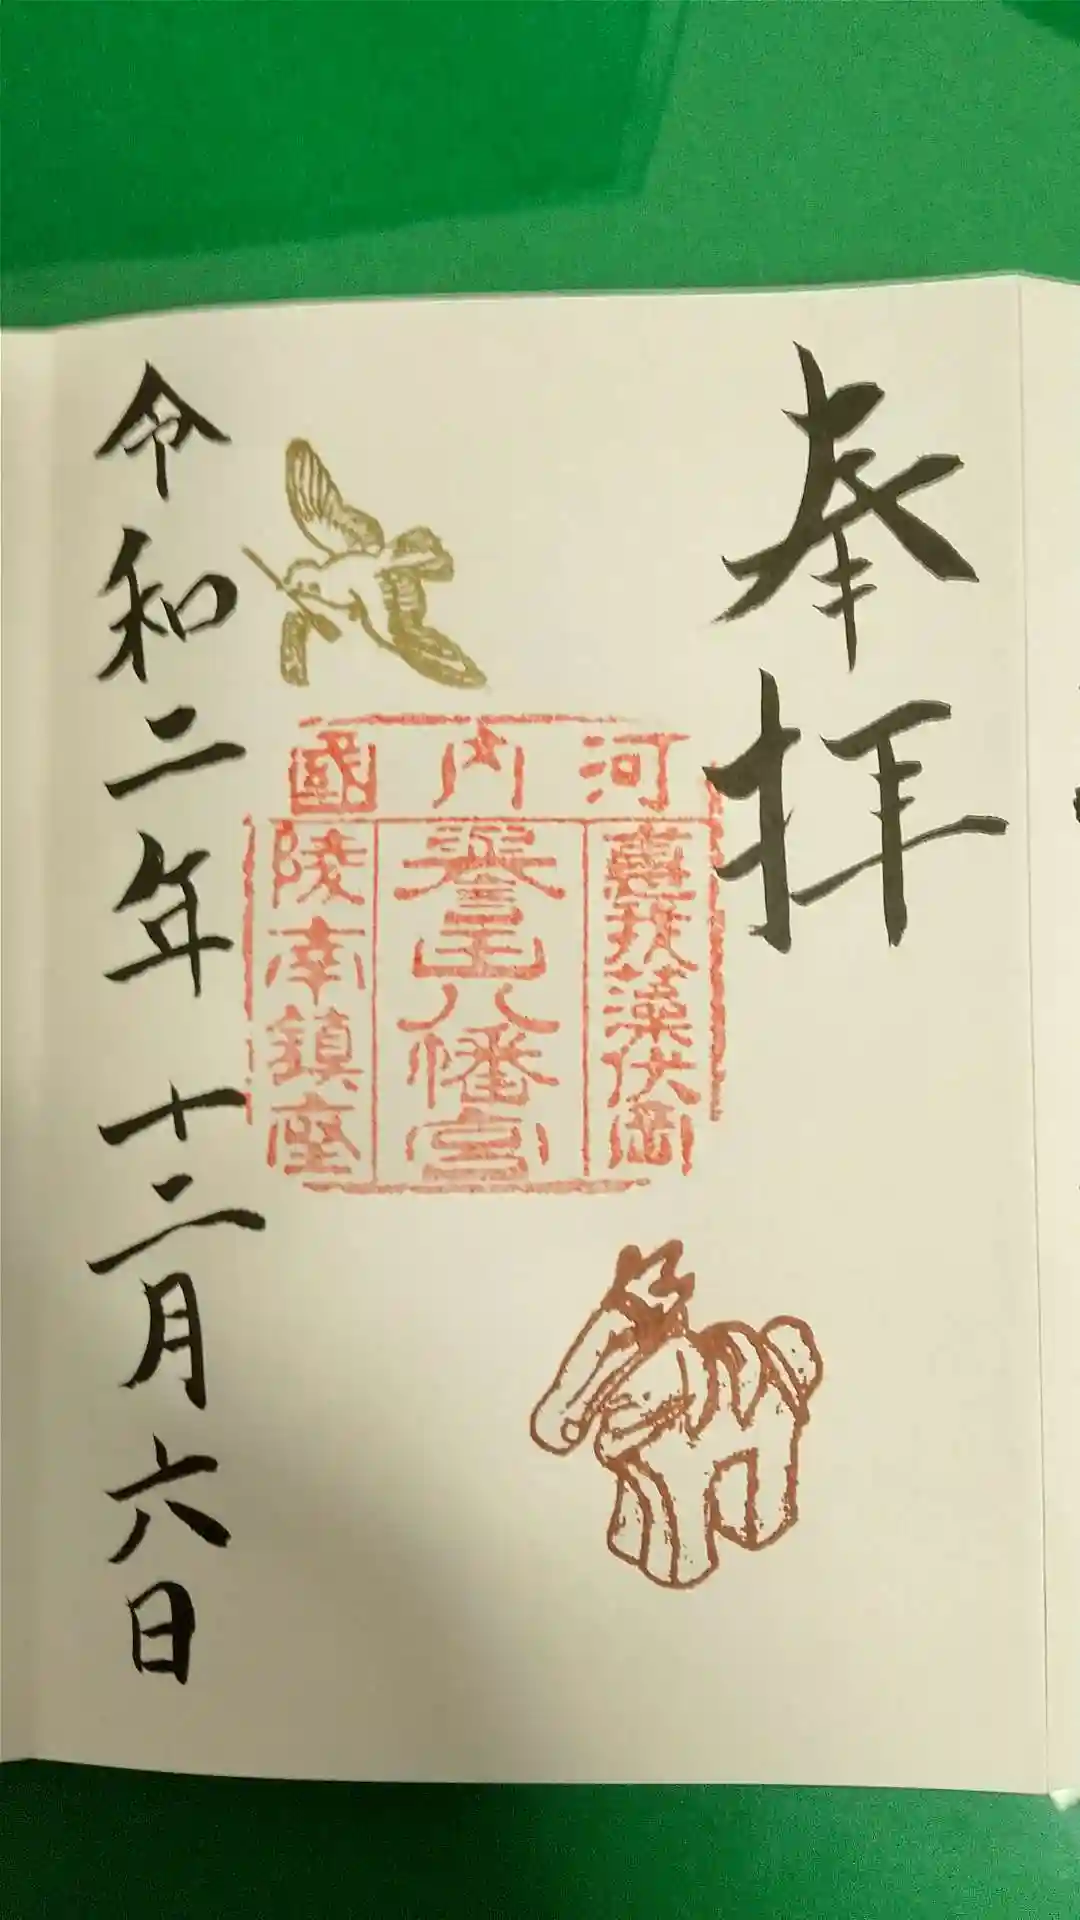 奉拝
河内國
惠我藻伏岡
譽田八幡宮
陵南鎮座
令和二年 十二月六日